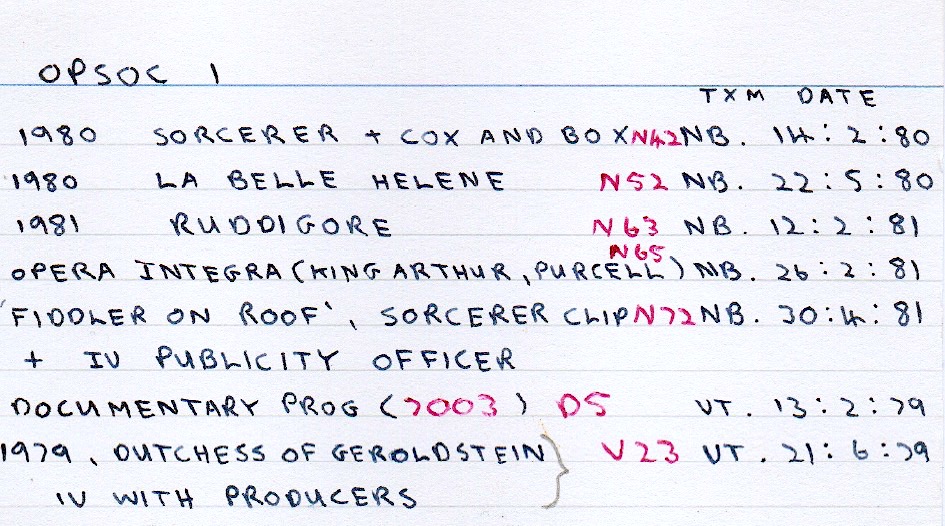 OPSOC 1
TXM DATE
1980 SORCERER + COX AND BOX N42 NB. 14:2:80
1980 LA BELLE HELENE N52 NB. 22:5:80
1981 RUDDIGORE N63 NB. 12:2:81
N65
OPERA INTEGRA (KING ARTHUR, PURCELL) NB. 26:2:81
'FIDDLER ON ROOF', SORCERER CLIP N72 NB. 30:4:81
+ IV PUBLICITY OFFICER
DOCUMENTARY PROG (7003) D5 VT. 13:2:79
1979, DUTCHESS OF GEROLDSTEIN } V23 VT. 21:6:79
IV WITH PRODUCERS